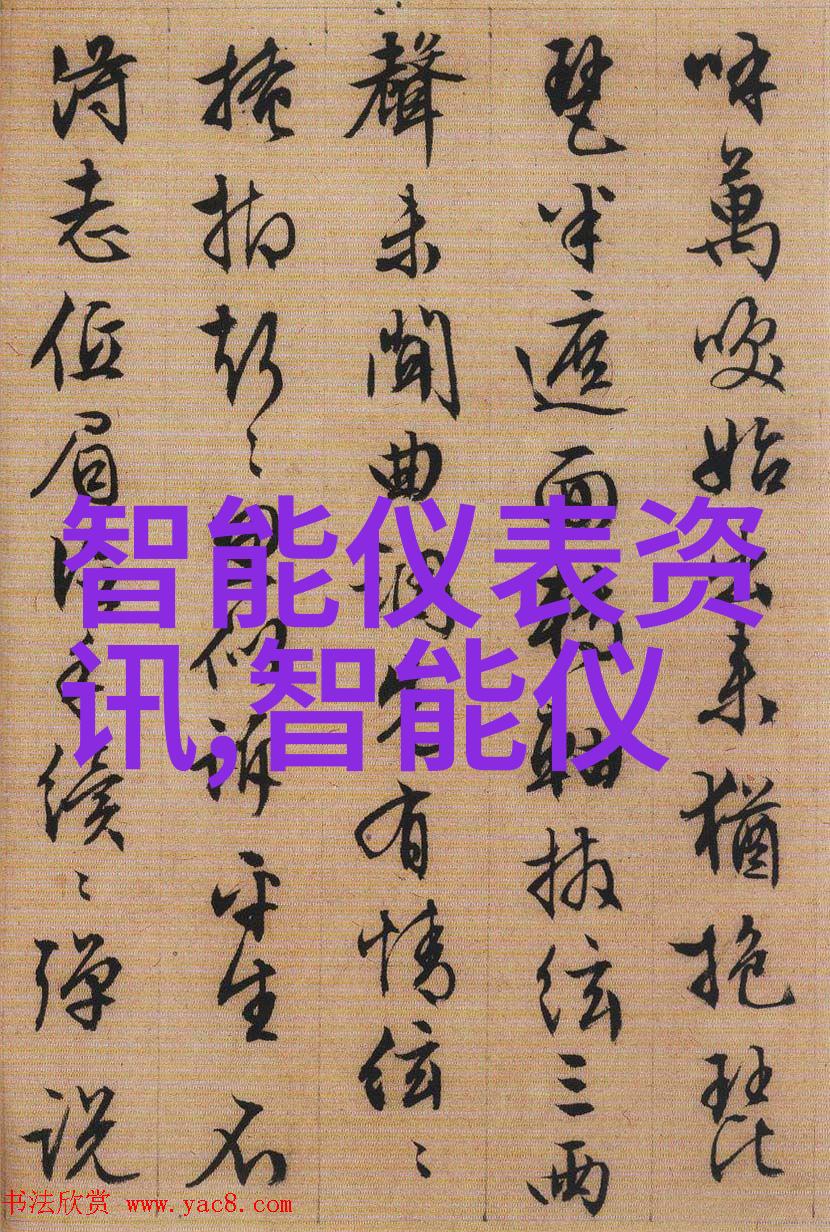 呼萬喚始出来猶抱琵
琶半遮面轉軸撥絃三兩
聲未聞曲調先有情絃〻
掩抑聲〻思似訴平生不
得志低眉信手續〻彈説
智能仪表资
讯,智能仪
书法欣赏 www.yac8.com